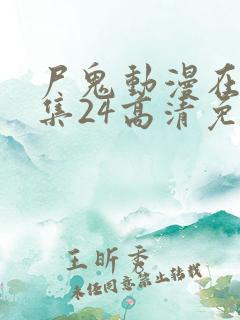 尸鬼動漫在
集24高清免
王昕秀
未经同意禁止转载